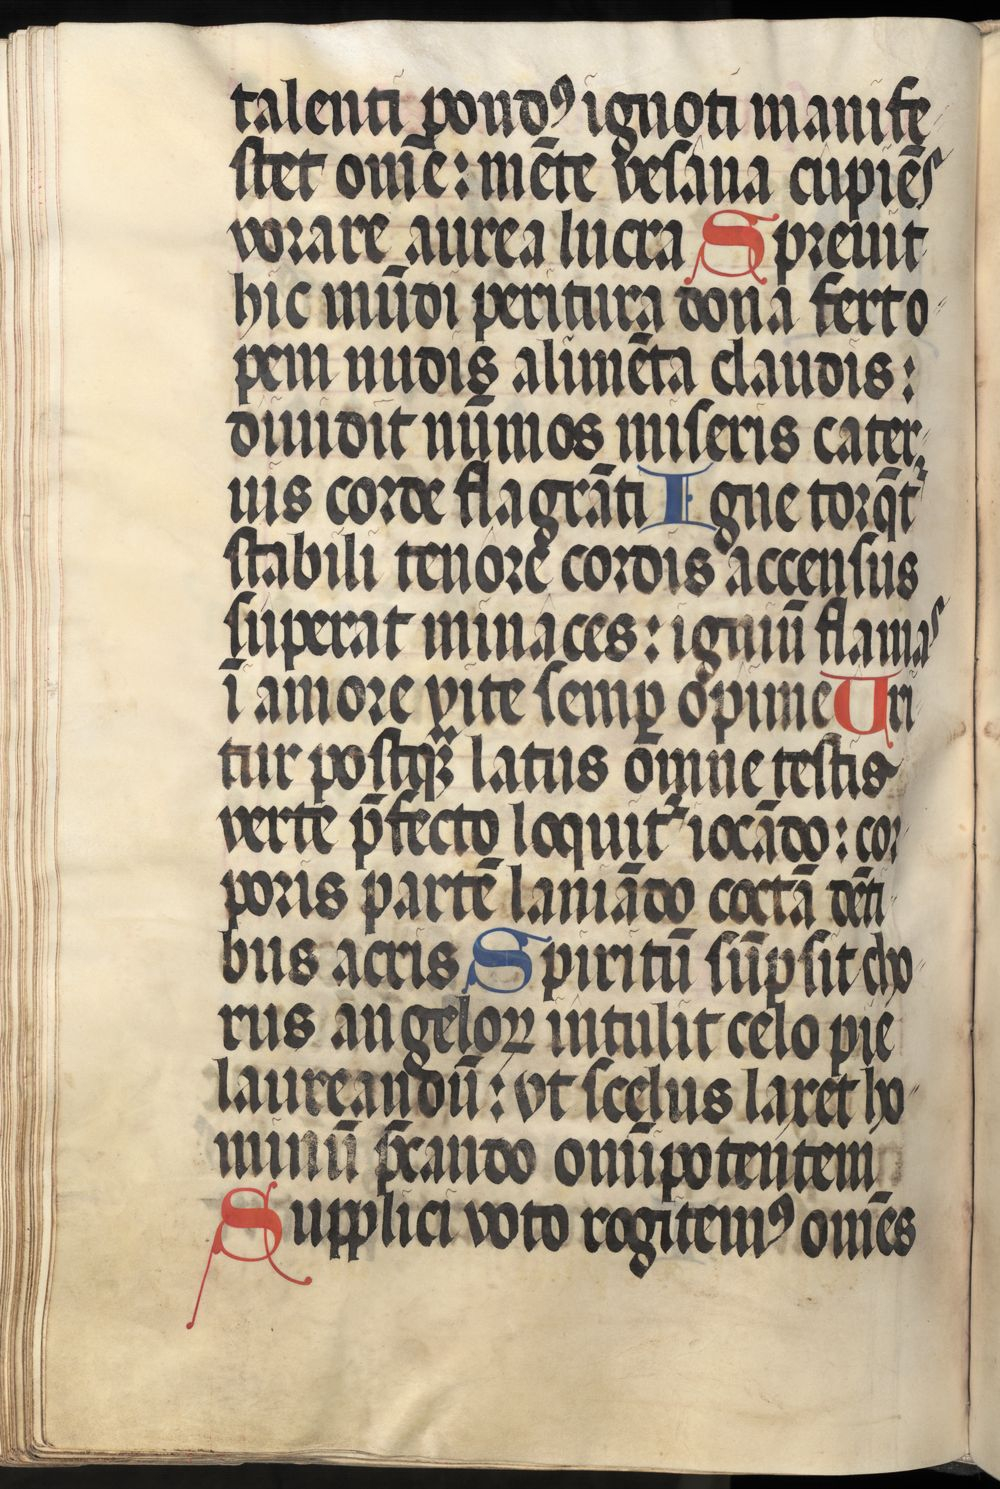 talenti pondꝰ ignoti manife
stet om̄e: mēte vesana cupiēs
vorare aurea lucra Spreuit
hic mūdi peritura dona fert o
pem nudis alimēta claudis:
diuidit nūmos miseris cater
uis corde flagrāti Igne torq̄t᷑
stabili tenore cordis accensus
superat minaces: igniū flamas
ī amore vite semꝑ opime Uri
tur postqȝ latus omne testis
verte p̄fecto loquit᷑ iocādo: cor
poris partē laniādo coctā dēti
bus acris Spiritū sūpsit cho
rus angeloꝝ intulit celo pie
laureandū: vt scelus laxet ho
minū p̄cando omīpotentem
Supplici voto rogitemꝰ om̄es